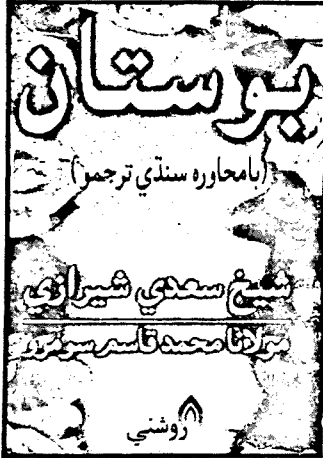 بوستان
(بامحاوره سنڌي ترجمو)
شيخ سعدي شيرازي
مولانا محمد قاسم سومرو
روشني